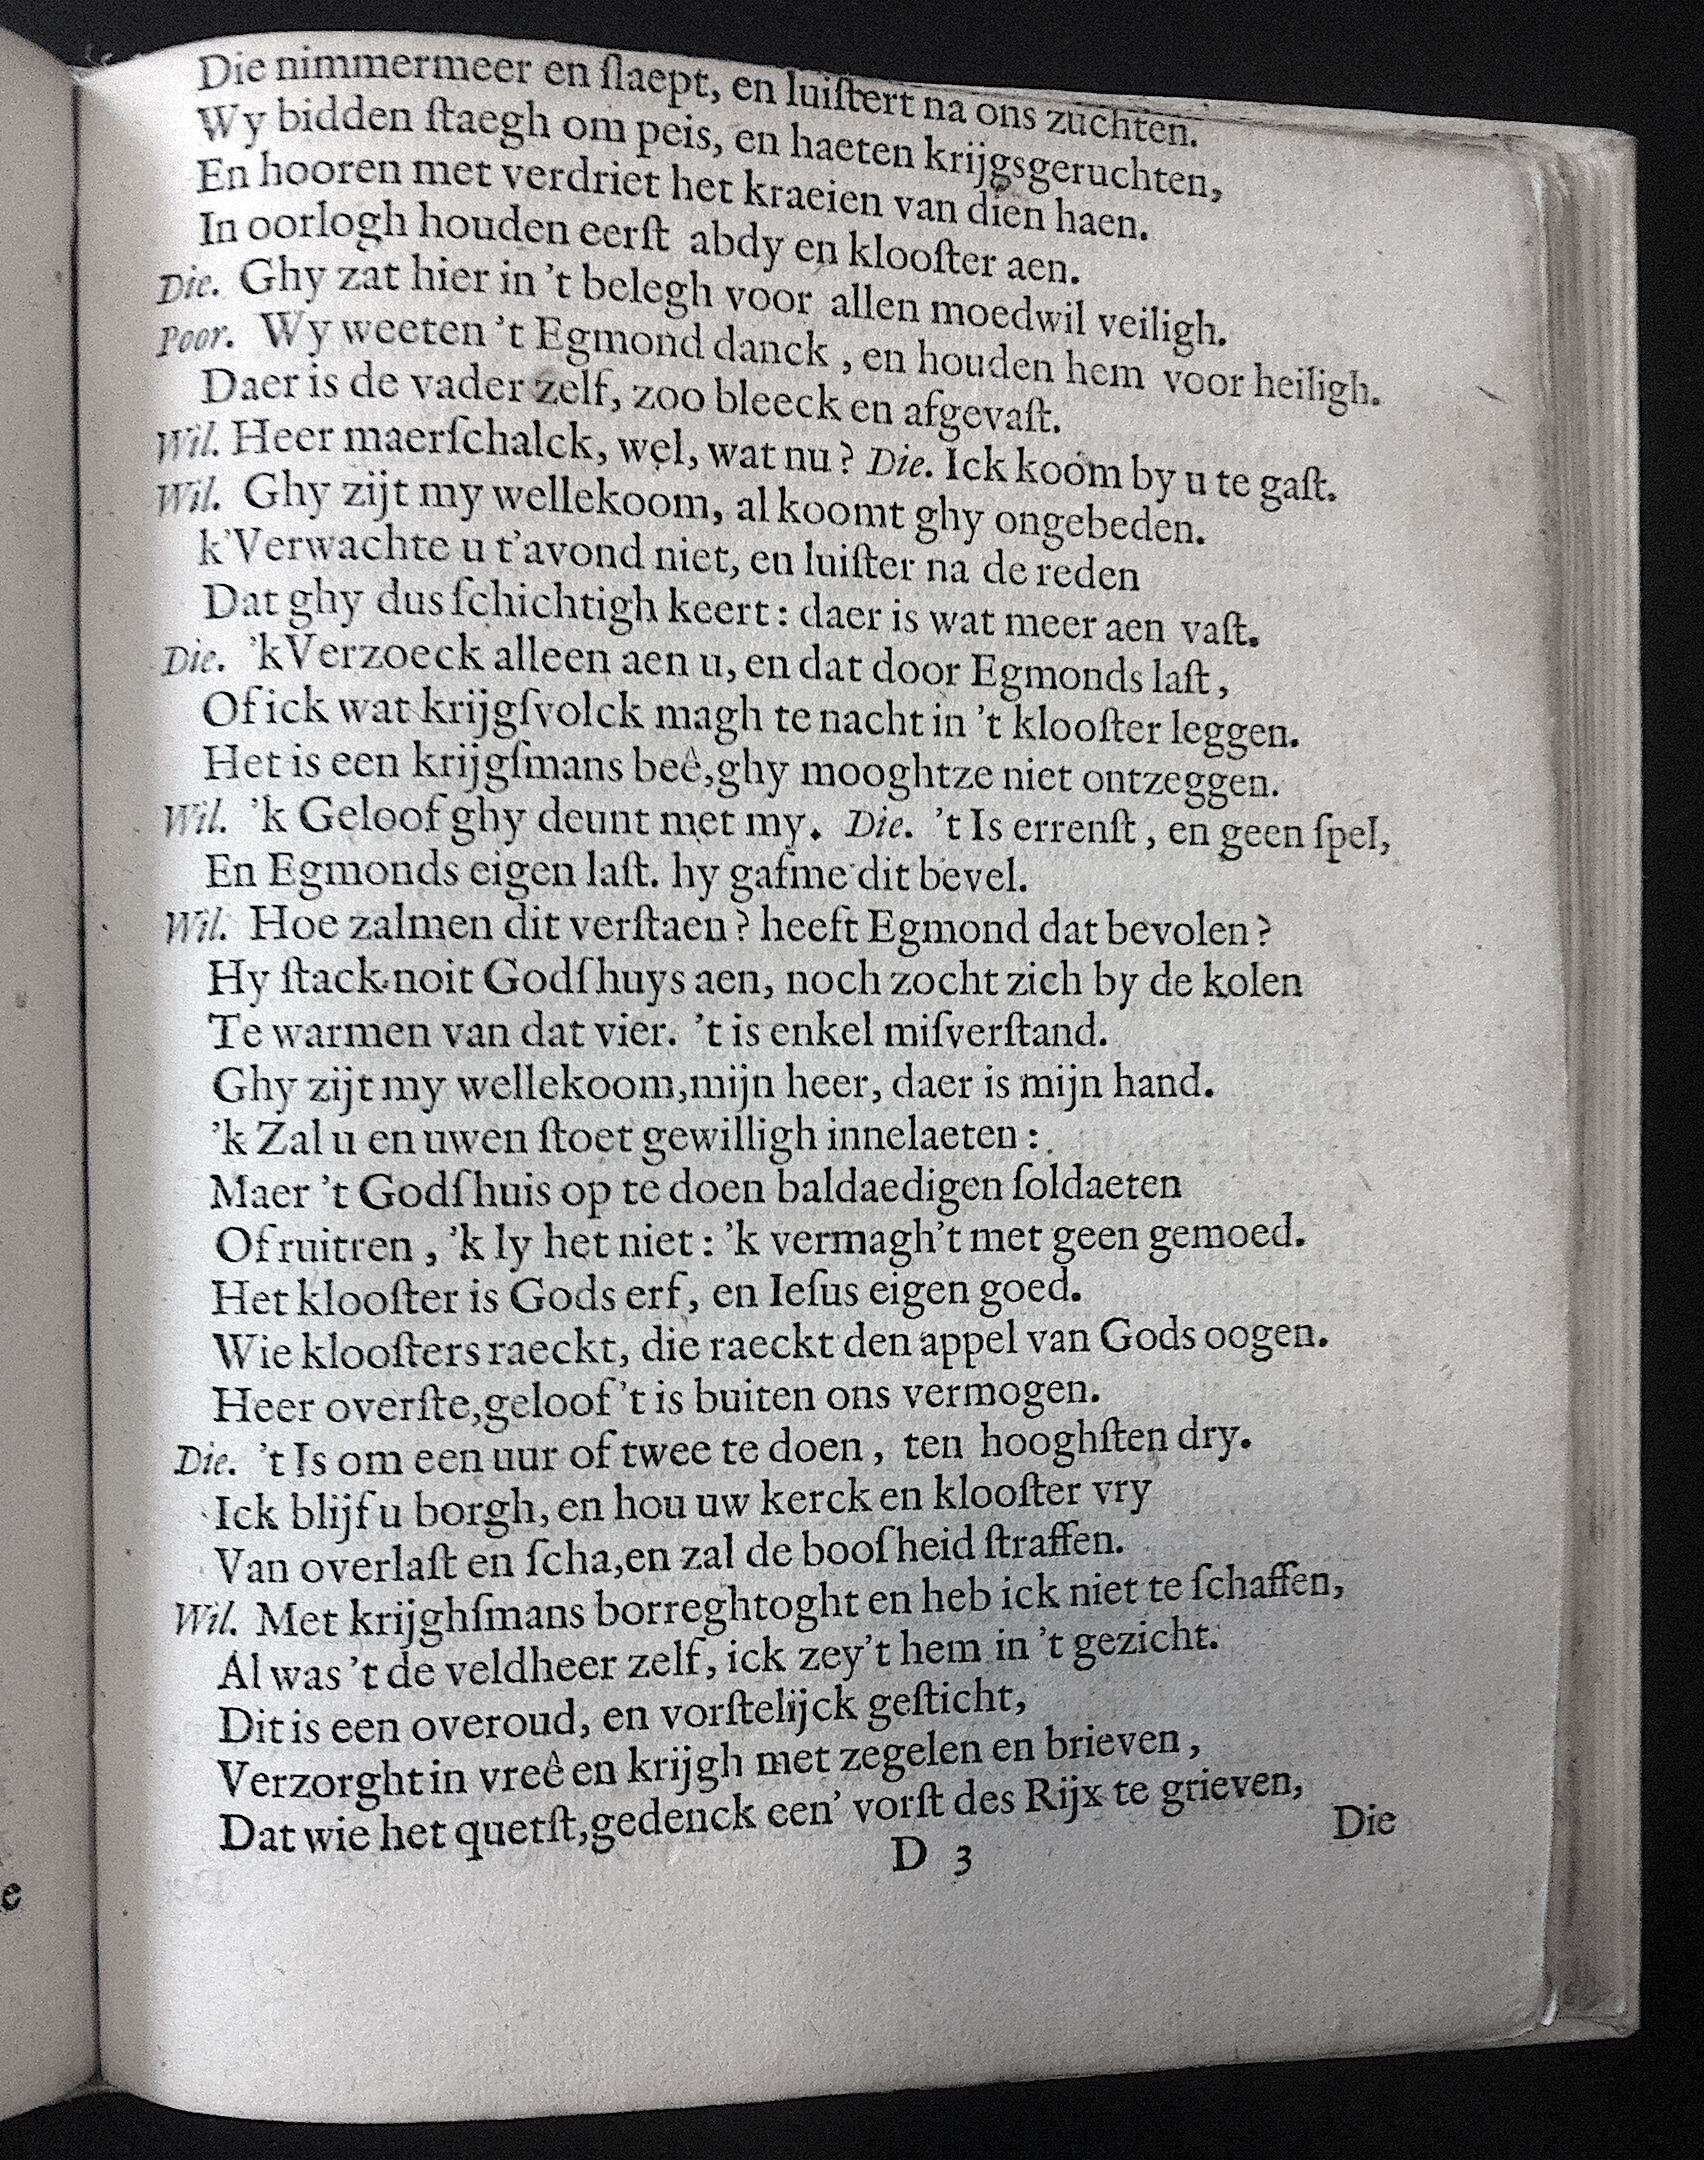 Die nimmermeer en ſlaept, en luiſtert na ons zuchten.
Wy bidden ſtaegh om peis, en haeten krijgsgeruchten,
En hooren met verdriet het kraeien van dien haen.
In oorlogh houden eerſt abdy en klooſter aen.
Die. Ghy zat hier in 't belegh voor allen moedwil veiligh.
Poor. Wy weeten 't Egmond danck, en houden hem voor heiligh.
Daer is de vader zelf, zoo bleeck en afgevaſt.
Wil. Heer maerſchalck, wel, wat nu? Die. Ick koom by u te gaſt.
Wil. Ghy zijt my wellekoom, al koomt ghy ongebeden.
k'Verwachte u t'avond niet, en luiſter na de reden
Dat ghy dus ſchichtigh keert: daer is wat meer aen vaſt.
Die. 'kVerzoeck alleen aen u, en dat door Egmonds laſt,
Of ick wat krijgſvolck magh te nacht in 't klooſter leggen.
Het is een krijgſmans beê, ghy mooghtze niet ontzeggen.
Wil. 'k Geloof ghy deunt met my. Die. 't Is errenſt, en geen ſpel,
En Egmonds eigen laſt. hy gafme dit bevel.
Wil. Hoe zalmen dit verſtaen? heeft Egmond dat bevolen?
Hy ſtack noit Godſhuys aen, noch zocht zich by de kolen
Te warmen van dat vier. 't is enkel miſverſtand.
Ghy zijt my wellekoom, mijn heer, daer is mijn hand.
'k Zal u en uwen ſtoet gewilligh innelaeten:
Maer 't Godſhuis op te doen baldaedigen ſoldaeten
Of ruitren, 'k ly het niet: 'k vermagh't met geen gemoed.
Het klooſter is Gods erf, en Ieſus eigen goed.
Wie klooſters raeckt, die raeckt den appel van Gods oogen.
Heer overſte, geloof 't is buiten ons vermogen.
Die. 't Is om een uur of twee te doen, ten hooghſten dry.
Ick blijf u borgh, en hou uw kerck en klooſter vry
Van overlaſt en ſcha, en zal de booſheid ſtraffen.
Wil. Met krijghſmans borreghtoght en heb ick niet te ſchaffen,
Al was 't de veldheer zelf, ick zey't hem in 't gezicht.
Dit is een overoud, en vorſtelijck geſticht,
Verzorght in vreê en krijgh met zegelen en brieven,
Dat wie het quetſt, gedenck een' vorſt des Rijx te grieven,
D 3 Die
e